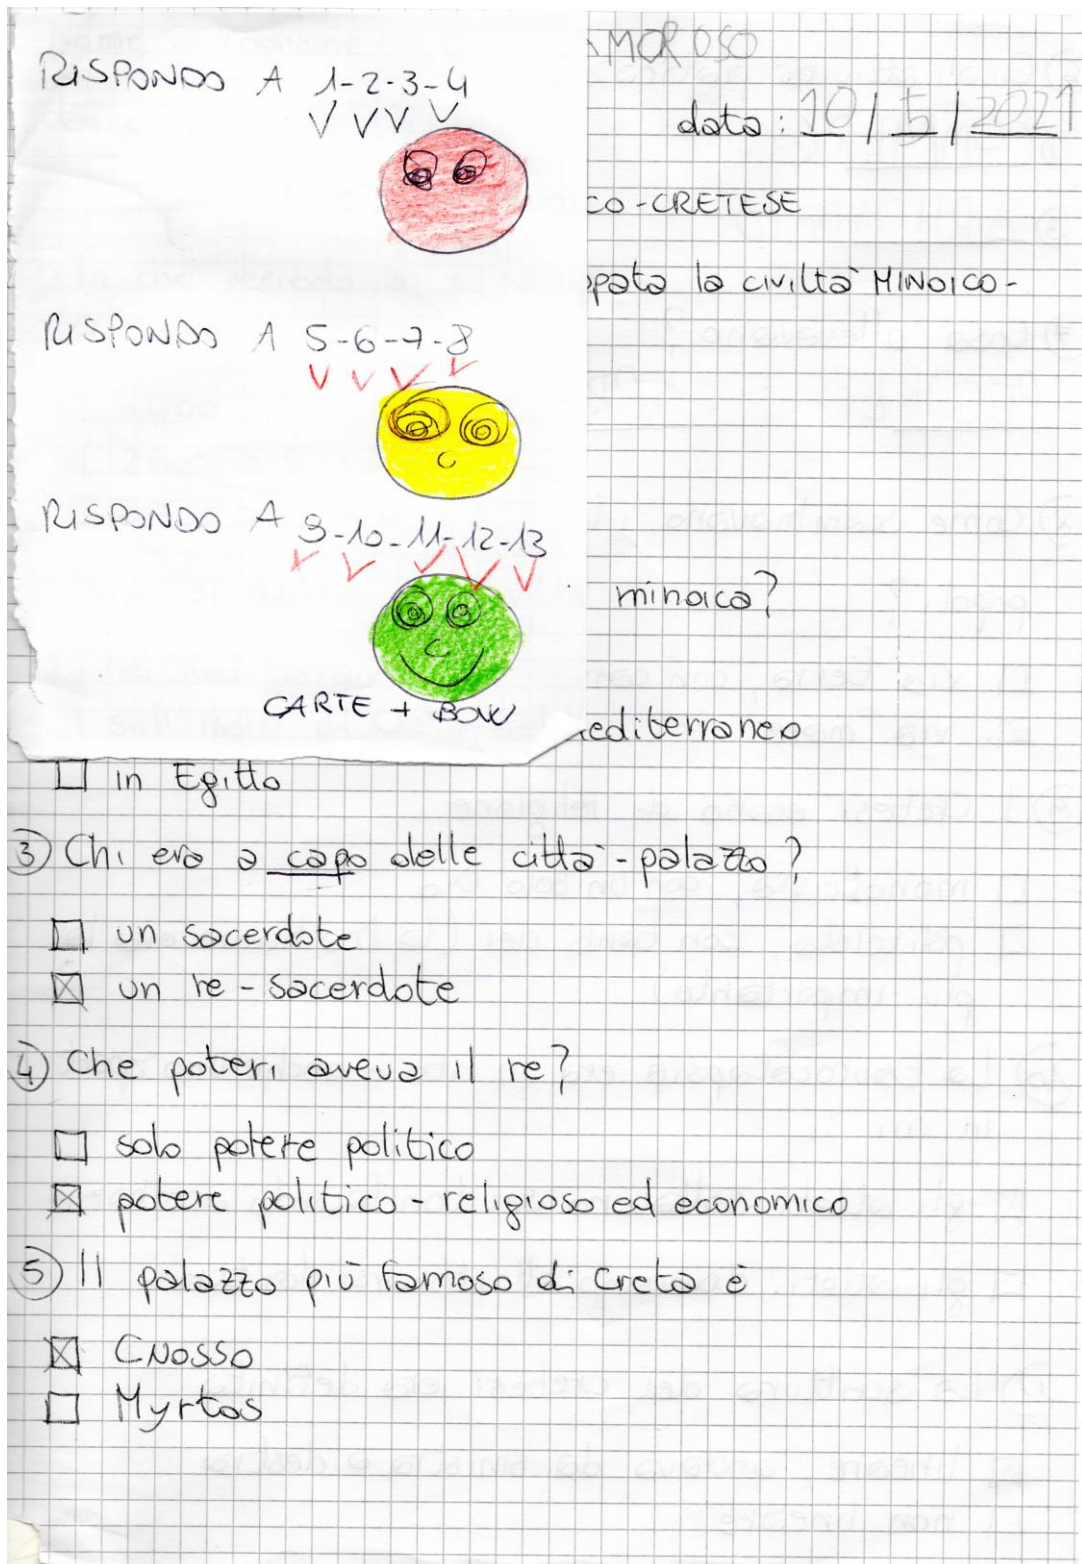 RISPONDO A 1-2-3-4
RISPONDO A 5-6-7-8
RISPONDO A 9-10-11-12-13
CARTE + BOW
AMOROSO
data: 10/5/2021
CO-CRETESE
ppata la civiltà MINOICO-
minoica?
mediterraneo
☐ in Egitto
③ Chi era a capo delle città-palazzo?
☐ un sacerdote
☒ un re-sacerdote
④ Che poteri aveva il re?
☐ solo potere politico
☒ potere politico-religioso ed economico
⑤ Il palazzo più famoso di Creta è
☒ CNOSSO
☐ Myrtos